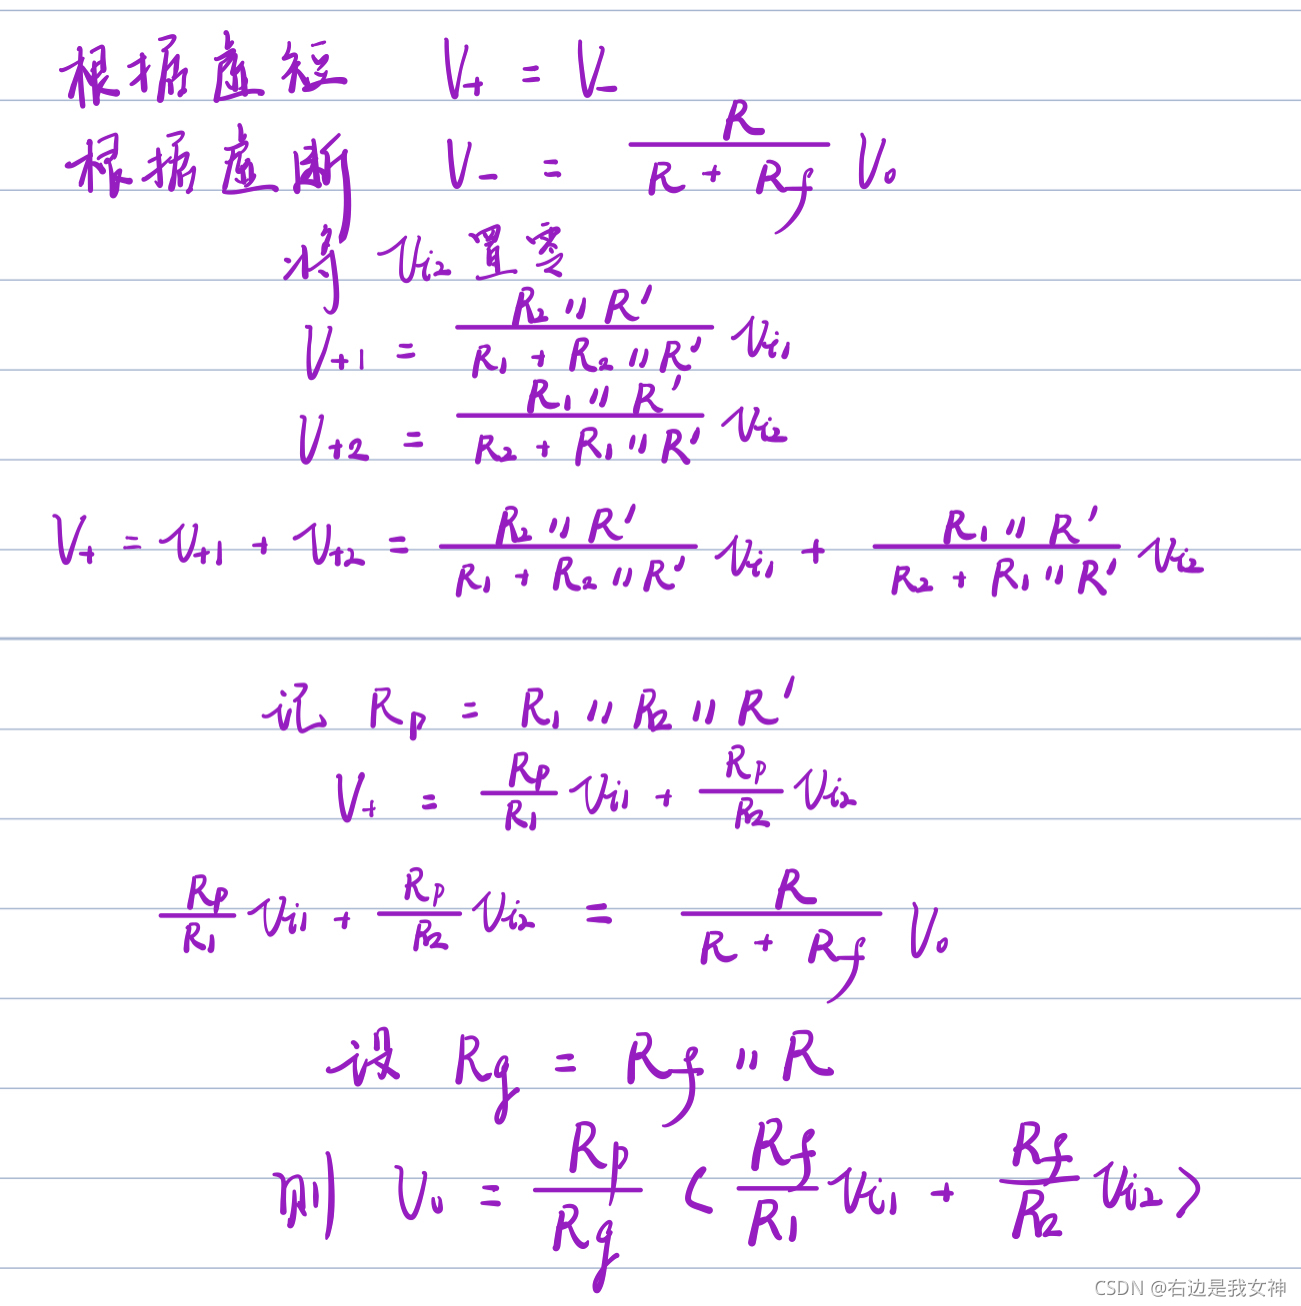 根据虚短 V₊ = V₋
根据虚断 V₋ = \frac{R}{R + R_f} V_o
将 V_{i2} 置零
V_{+1} = \frac{R_2 // R'}{R_1 + R_2 // R'} V_{i1}
V_{+2} = \frac{R_1 // R'}{R_2 + R_1 // R'} V_{i2}
V_+ = V_{+1} + V_{+2} = \frac{R_2 // R'}{R_1 + R_2 // R'} V_{i1} + \frac{R_1 // R'}{R_2 + R_1 // R'} V_{i2}
记 R_p = R_1 // R_2 // R'
V_+ = \frac{R_p}{R_1} V_{i1} + \frac{R_p}{R_2} V_{i2}
\frac{R_p}{R_1} V_{i1} + \frac{R_p}{R_2} V_{i2} = \frac{R}{R + R_f} V_o
设 R_q = R_f // R
则 V_o = \frac{R_p}{R_q} ( \frac{R_f}{R_1} V_{i1} + \frac{R_f}{R_2} V_{i2} )
CSDN @右边是我女神